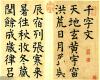 千字文
天地玄黄宇宙
洪荒日月盈昃
辰宿列張寒来
暑往秋收冬藏
閏餘成歲律呂